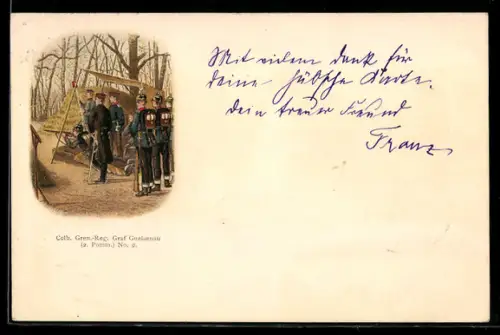 Mit vielem Dank für
deine hübsche Karte.
Dein treuer Freund
Franz
Colb. Gren.-Reg. Graf Gneisenau
(2. Pomm.) No. 9.